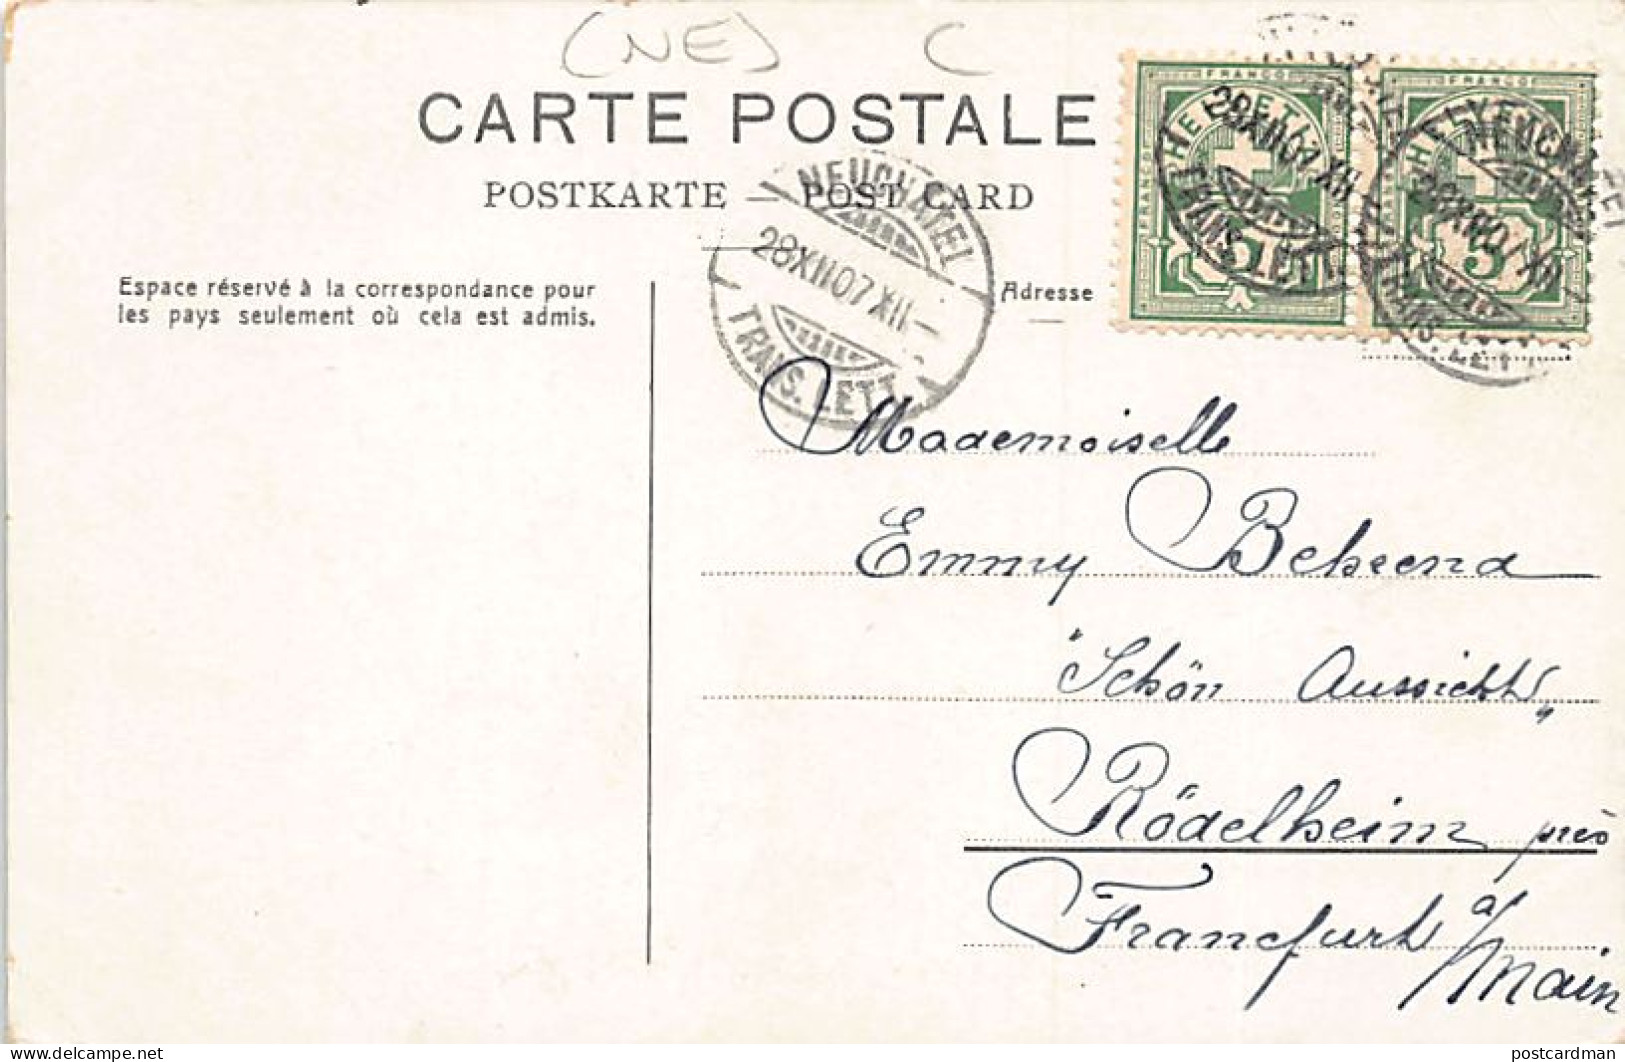 (NE) C
CARTE POSTALE
POSTKARTE — POST CARD
Espace réservé à la correspondance pour
les pays seulement où cela est admis.
Adresse
NEUCHATEL
28 XII 07 XII—
TRANS. LETT.
FRANCO
HELVETIA
5
28 XII 07 XII
TRANS. LETT.
FRANCO
HELVETIA
5
NEUCHATEL
28 XII 07 XII
TRANS. LETT.
Mademoiselle
Emmy Behrend
"Schön Aussicht"
Rödelheim près
Francfurt a/Main
postcardman